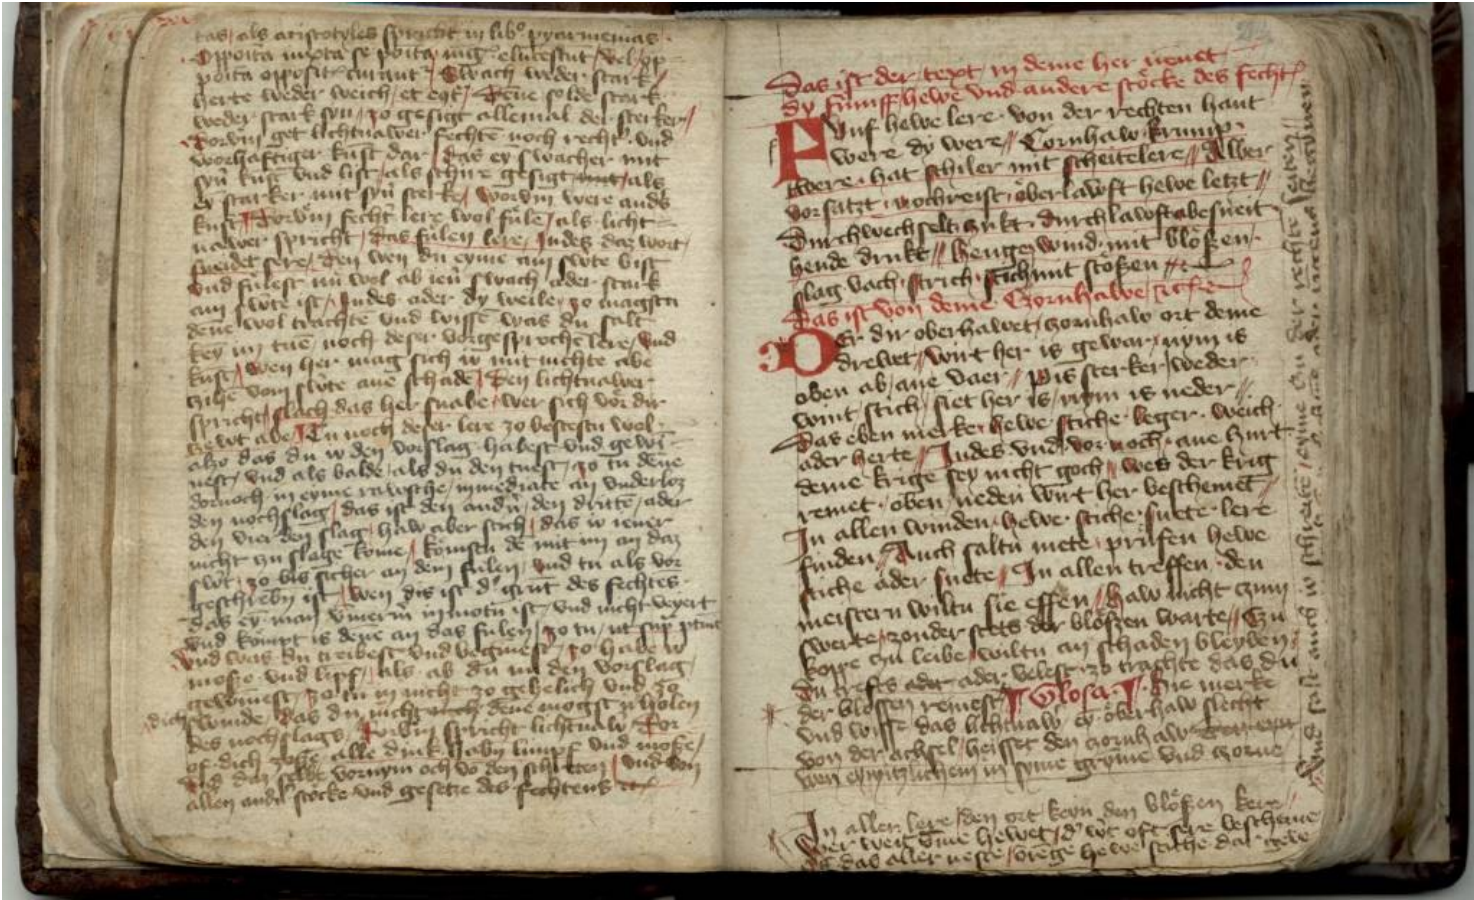 tas / als aristotyles spricht in libro pyarmenias ·
Opposita iuxta se posita mag͂ elucescunt / vel / op-
posita opposit͂ curant͂ / Swach weder stark /
herte weder weich / et eqͥ / Deñe solde stark
weder stark syn / zo gesigt allemal der sterker //
Dorvm̄ get lichtnawer fechtē noch rechtˀ vnd
worhaftiger kūst dar / das eȳ swacher mit
synˀ kūst vnd list / als schire gesigt mit / als
eȳ starker mit synˀ sterke / worvm̄ were andˀs
kūst / Dorvm̄ fechtˀ lere wol fūlē / als licht-
nawer spricht / das fülen lere / Indes daz wort /
sneidet sere / Den wen du eyme am swte bist
vnd fülest nū wol ab ienˀ swach / ader stark
am swte ist / Indes ader dy weile / zo magstu
deñe wol trachtē vnd wissē was du salt
kegē im tuē noch deser vorgesprochēlere / vnd
kūst / Wen her mag sich io mit nichte abe
czihē vom swte ane schadē / Den lichtnawer
spricht / slach das her snabe / wer sich vor dir
czewt abe / Tu noch deser lere zo bestestu wol
alzo das du io den vorslag · habest vnd gewī-
nest / vnd als balde / als du den tuest / zo tu deñe
dornoch in eyme rawsche / inmediate an vnderloz
den nochslag / das ist den andˀn / den drittē / ader
den vierden slag / haw aber stich / das io iener
nicht czu slage kome / Kömstu dē mit im an daz
swt / zo bis sicher an dem fülen / vnd tu als vor
geschrebn ist / Wen dis ist dˀ grūt des fechtēs ·
das eȳ man ūmermˀ in motu ist / vnd nicht veyert
vnd kömpt is deñe an das fülen / zo tu / ut supˀ ptuit
vnd was du treibest vnd begȳnest / zo habe io
moße vnd lïpf / als ab du im den vorslag
gewïnest / zo tu in nicht zo gehelich vnd zo
dich swinde / das du nicht deñe mögst dˀholen
des nochslags / dorvm̄ spricht lichtnawˀ / Dor-
of dich zosze / alle dink habñ limpf vnd moße /
Vnd das selbe vornym och vō den schˀtten / vnd von
allen andˀn stöcke vnd gesetze des fechtens etc
Das ist der text / in deme her nēnet
dy fümff hewe vnd andere stöcke des fechtˀ
Fvnf hewe lere · von der rechten hant
were dy were // Czornhaw · krump ·
twere · hat schiler mit scheitelere // Alber
vorsatzt · nochreist · öberlawft hewe letzt //
Durchwechselt · czukt · durchlawft abesneit
hende drukt // Henge · wind · mit blößen ·
slag vach · strich · stich mit stößen //
Das ist von deme · Czornhawe / etc
Der dir oberhawet / czornhaw ort deme
drewet / wirt her is gewar / nym is
oben ab / ane vaer // Pis sterker weder
wint stich / siet her is / nym is neder //
Das eben merke / hewe · stiche · leger · weich
ader herte // Indes vnd vor noch · ane hurt
deme krige sey nicht goch // wes der krig
remet · oben / neden wirt her beschemet //
In allen winden · hewe · stiche · snete · lere
finden // Auch saltu mete / prüfen hewe
stiche ader snete // In allen treffen · den
meistern wiltu sie effen // Haw nicht czum
swerte / zonder stets der blößen warte // Czu
koppe czu leibe / wiltu an schaden bleyben
du trefts ader velest · zo trachte das du
der blossen remest // Glosa · Hie merke
vnd wisse das lichtnawˀ · eȳ öberhaw slecht
von der achsel / heisset den czornhaw
wen eym itzlichem in syme gryme vnd czorne
In aller lere / den ort · keyn den blößen kere //
wer weit ūme hewet / dˀ wirt oft sere beschemet
of das aller neste / brēge hewe stiche dar gewe